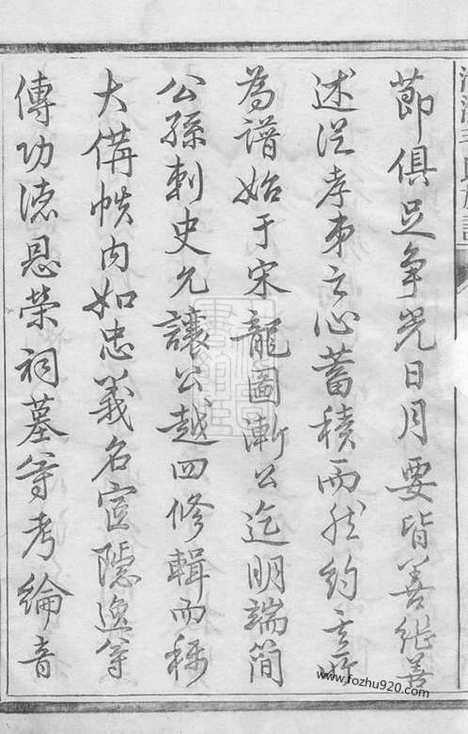 節俱足爭光日月要皆善繼善
述從孝弟之心蓄積而然約所
為譜始于宋龍圖漸公迄明端簡
公孫刺史允讓公越四修輯而稱
大備帙内如忠義名宦隱逸等
傳功德恩榮祠墓等考綸音
www.fozhu920.com